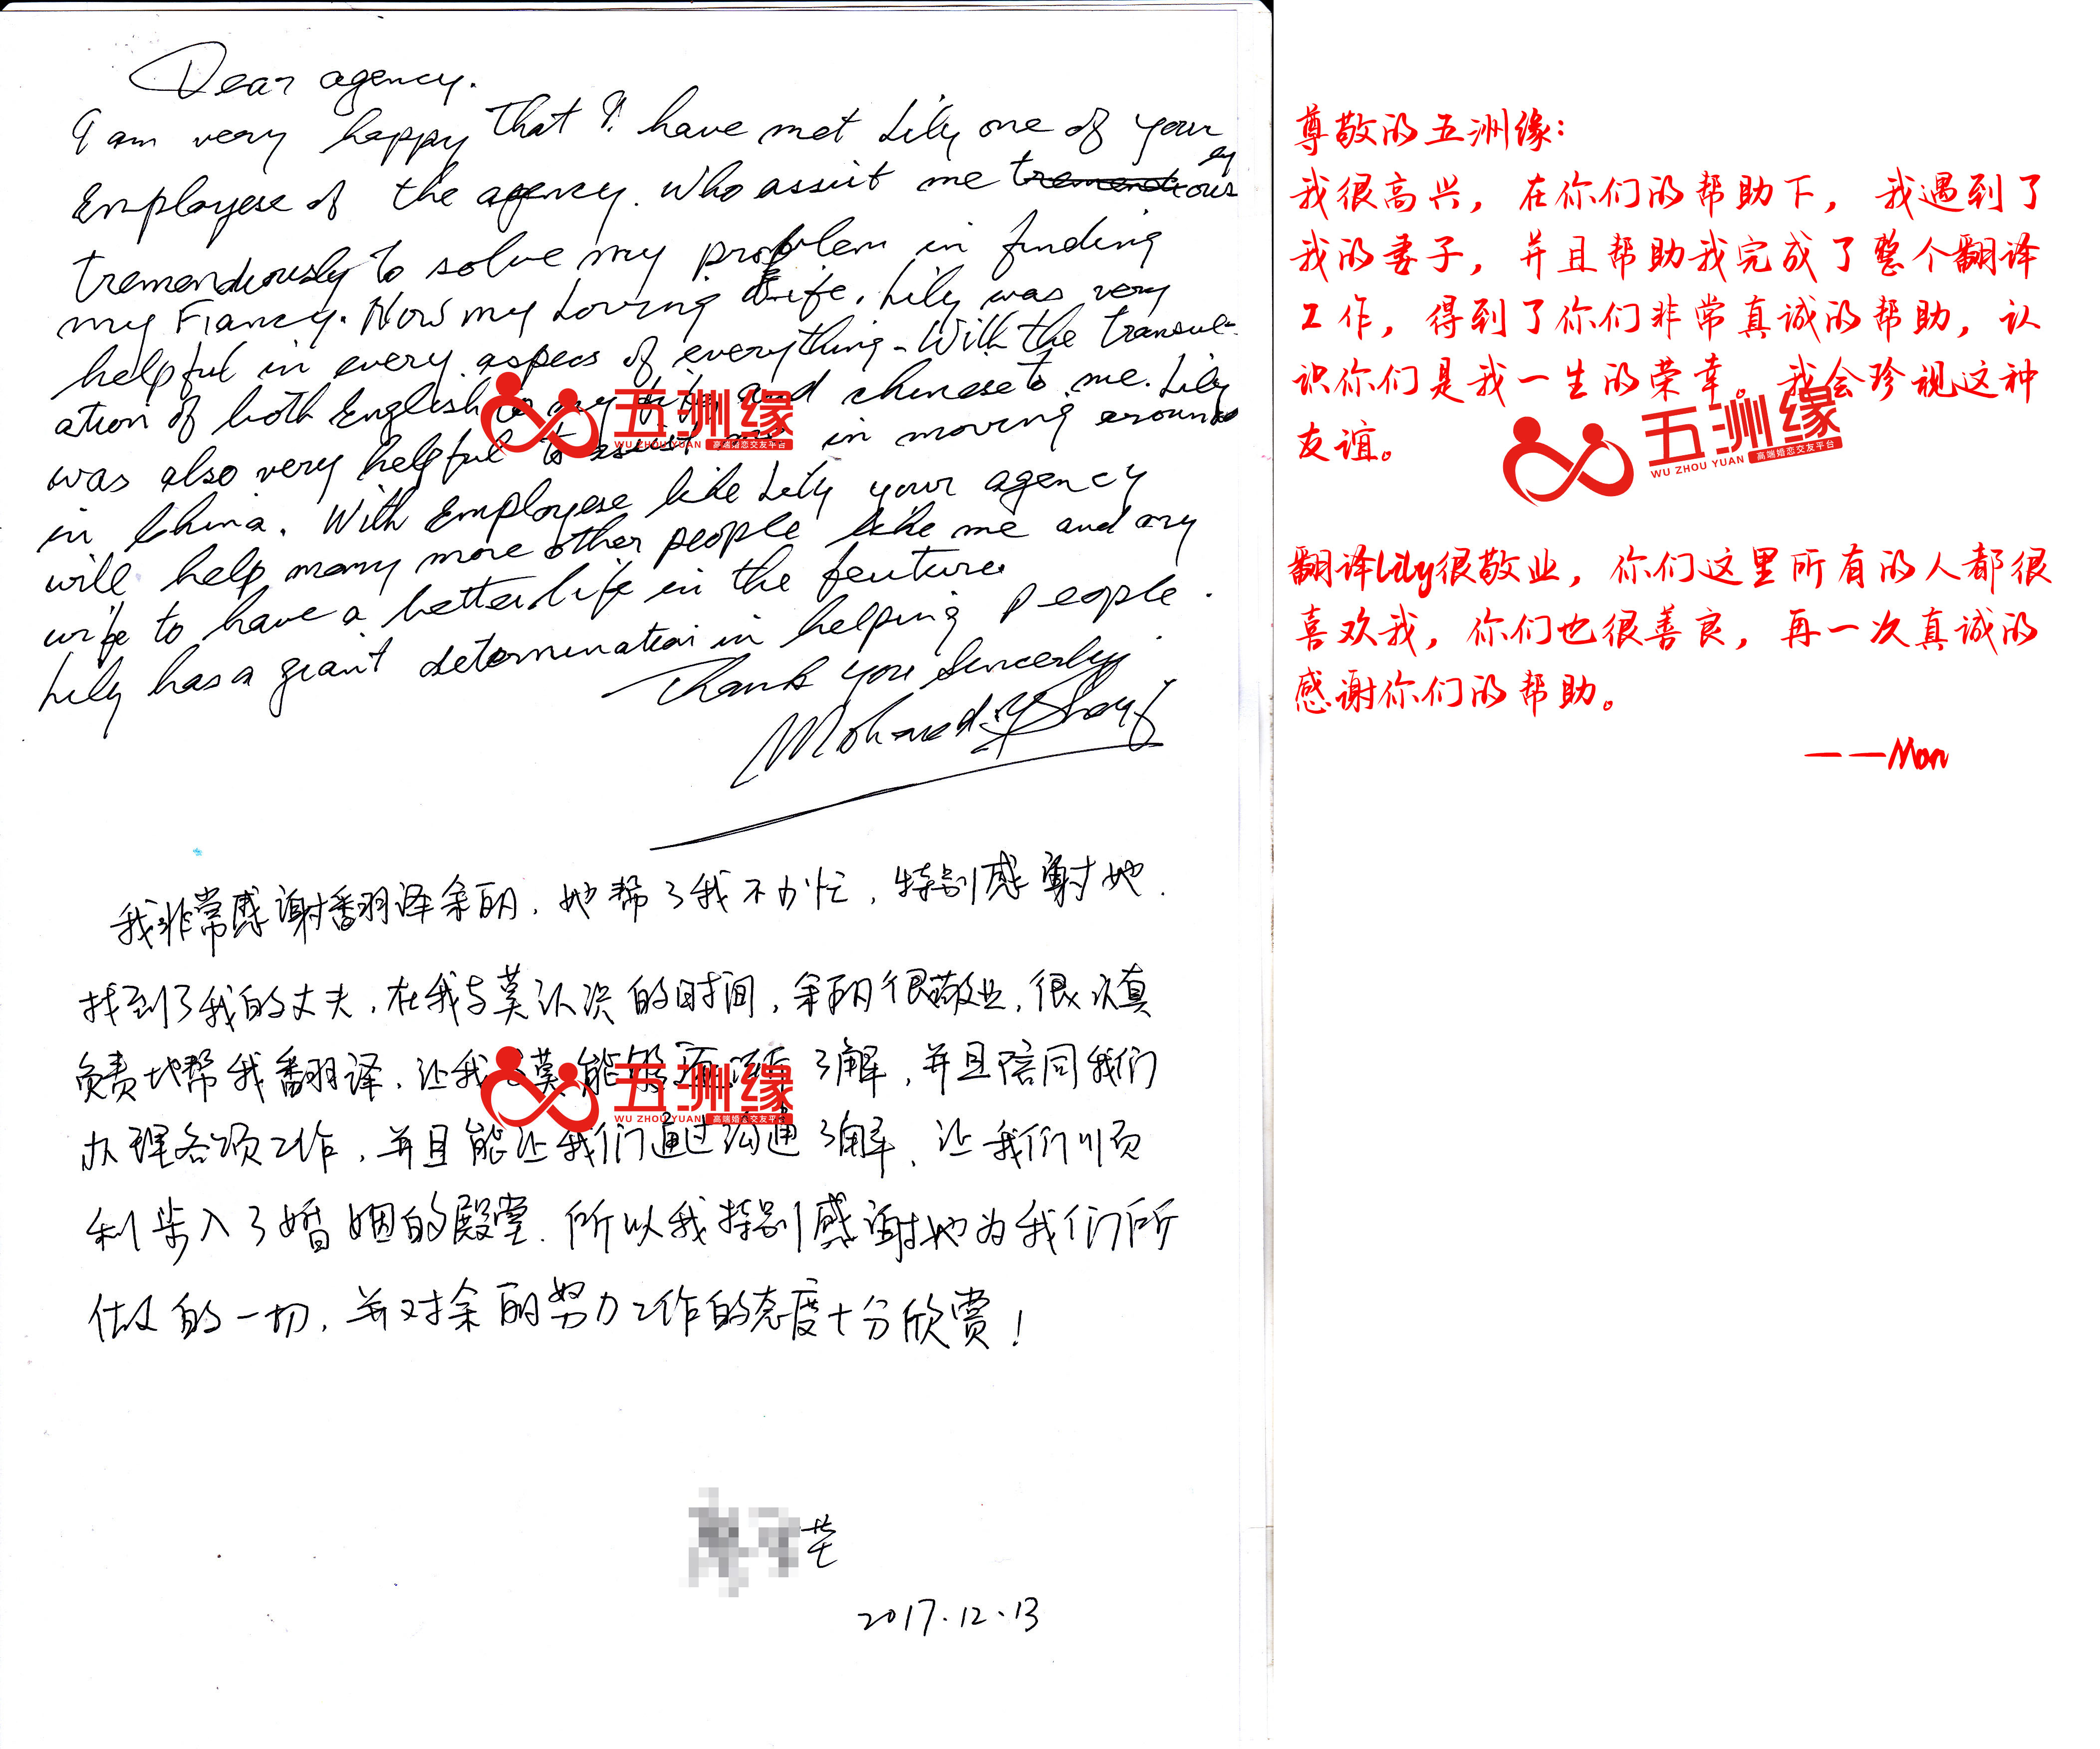 Dear agency.
I am very happy that I have met Lily one of your
Employese of the agency. Who assist me tremendious ey
tremendiously to solve my problem in finding
my Fiancy. Now my Loving Wife. Lily was very
helpful in every aspecs of everything. With the transul-
ation of both English to my and chinese to me. Lily
was also very helpful to assist in moving around
in China. With Employese like Lily your agency
will help many more other people like me and my
wife to have a better life in the feuture
Lily has a giant determination in helping people.
Thank you Sincerly
Mohamed
我非常感谢翻译余丽，她帮了我不少忙，特别感谢她.
找到了我的丈夫，在我与莫认识的时间，余丽很敬业，很认真
负责地帮我翻译，让我与莫能够 了解，并且陪同我们
办理各项工作，并且能让我们通过沟通了解，让我们顺
利步入了婚姻的殿堂. 所以我特别感谢她为我们所
做的一切，并对余丽努力工作的态度十分欣赏！
芒
2017.12.13
尊敬的五洲缘：
我很高兴，在你们的帮助下，我遇到了
我的妻子，并且帮助我完成了整个翻译
工作，得到了你们非常真诚的帮助，认
识你们是我一生的荣幸。我会珍视这种
友谊。
翻译Lily很敬业，你们这里所有的人都很
喜欢我，你们也很善良，再一次真诚的
感谢你们的帮助。
——Mon
五洲缘
WU ZHOU YUAN 高端婚恋交友平台
五洲缘
WU ZHOU YUAN 高端婚恋交友平台
五洲缘
WU ZHOU YUAN 高端婚恋交友平台